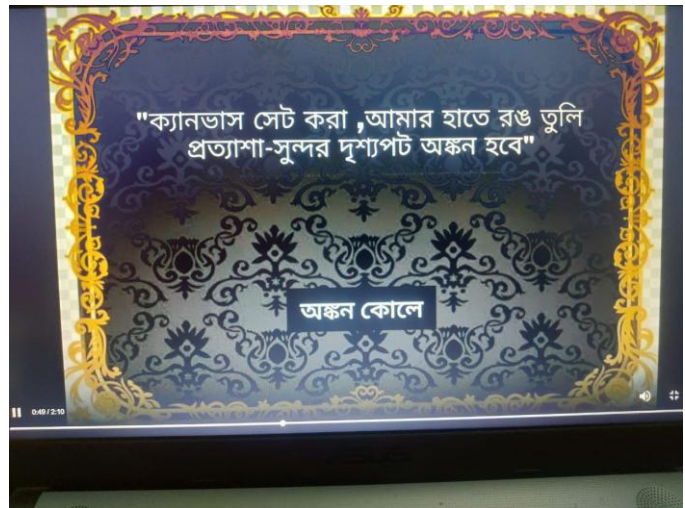 "ক্যানভাস সেট করা ,আমার হাতে রঙ তুলি
প্রত্যাশা-সুন্দর দৃশ্যপট অঙ্কন হবে"
অঙ্কন কোলে
0:49 / 2:10